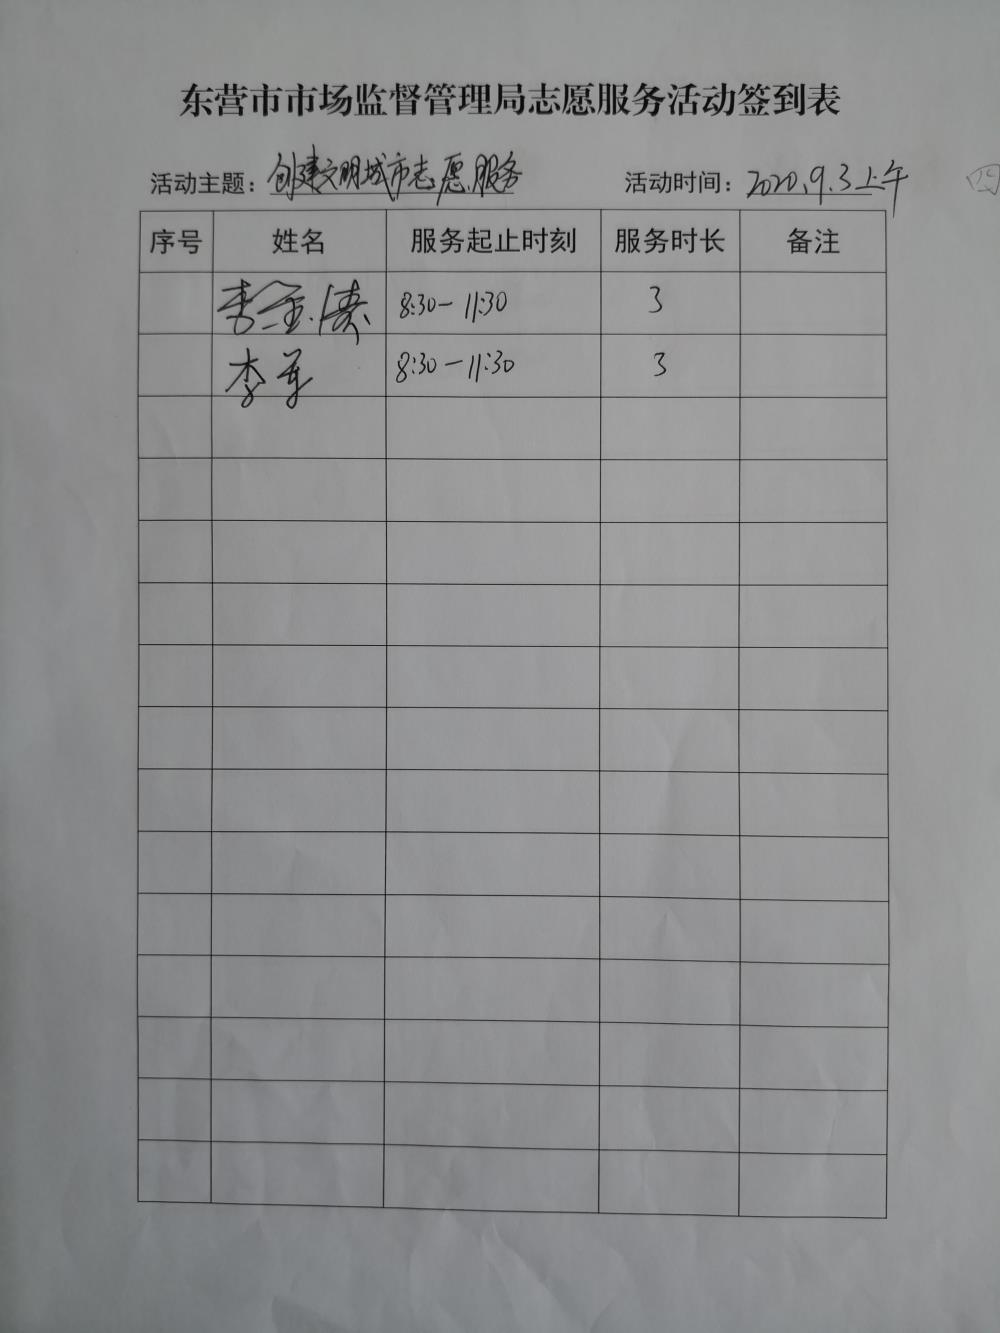 东营市市场监督管理局志愿服务活动签到表
活动主题：创建文明城市志愿服务 活动时间：2020.9.3上午 四
序号 姓名 服务起止时刻 服务时长 备注
李金涛 8:30－11:30 3
李军 8:30－11:30 3